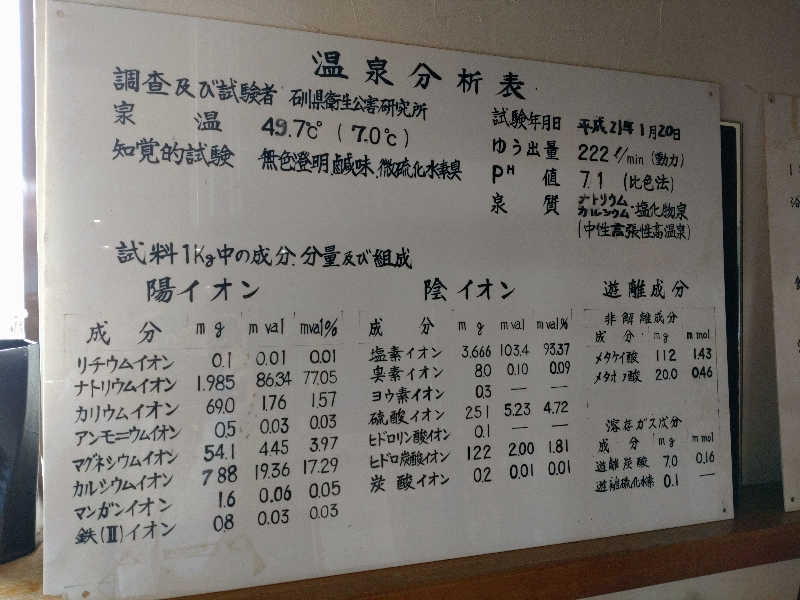 温泉分析表
調査及び試験者 石川県衛生公害研究所
泉 温 49.7℃ (7.0℃)
知覚的試験 無色澄明,鹹味,微硫化水素臭
試験年月日 平成21年1月20日
ゆう出量 222 ℓ/min (動力)
PH 値 7.1 (比色法)
泉 質 ナトリウム カルシウム・塩化物泉
(中性高張性高温泉)
試料1Kg中の成分.分量及び組成
陽イオン
成 分 mg mval mval%
リチウムイオン 0.1 0.01 0.01
ナトリウムイオン 1.985 86.34 77.05
カリウムイオン 69.0 1.76 1.57
アンモニウムイオン 0.5 0.03 0.03
マグネシウムイオン 54.1 4.45 3.97
カルシウムイオン 388 19.36 17.29
マンガンイオン 1.6 0.06 0.05
鉄(Ⅱ)イオン 0.8 0.03 0.03
陰イオン
成 分 mg mval mval%
塩素イオン 3.666 103.4 93.37
臭素イオン 8.0 0.10 0.09
ヨウ素イオン 0.3 — —
硫酸イオン 251 5.23 4.72
ヒドロリン酸イオン 0.1 — —
ヒドロ炭酸イオン 122 2.00 1.81
炭酸イオン 0.2 0.01 0.01
遊離成分
非解離成分
成 分 mg mmol
メタケイ酸 112 1.43
メタホウ酸 20.0 0.46
溶存ガス成分
成 分 mg mmol
遊離炭酸 7.0 0.16
遊離硫化水素 0.1 —